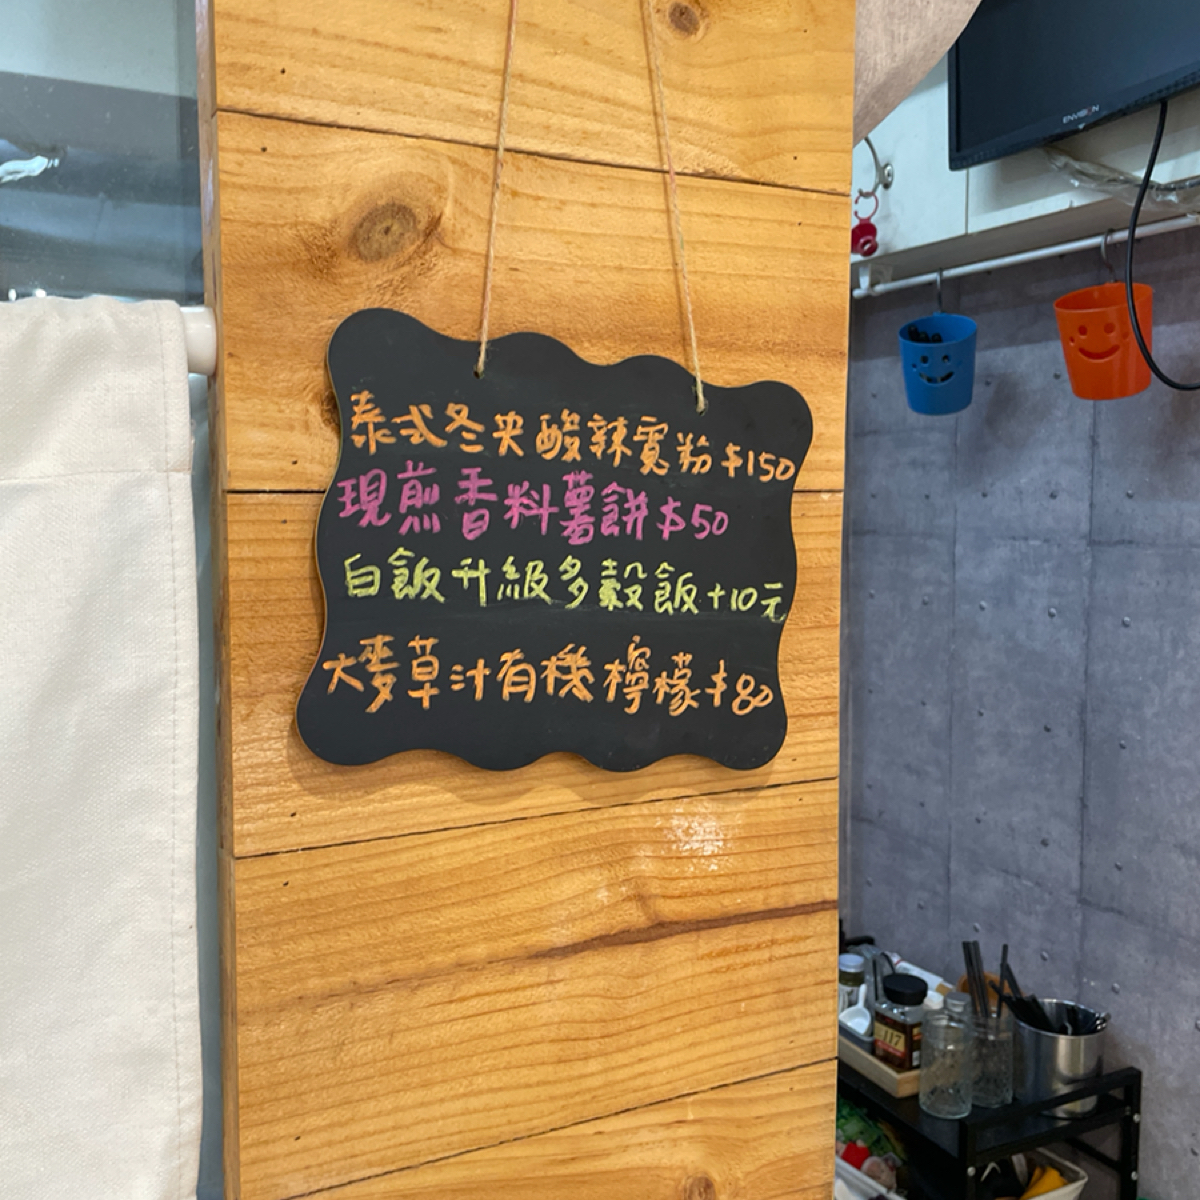 ENVISION
泰式冬央酸辣寬粉$150
現煎香料薯餅$50
白飯升級多穀飯+10元
大麥草汁有機檸檬$80
117